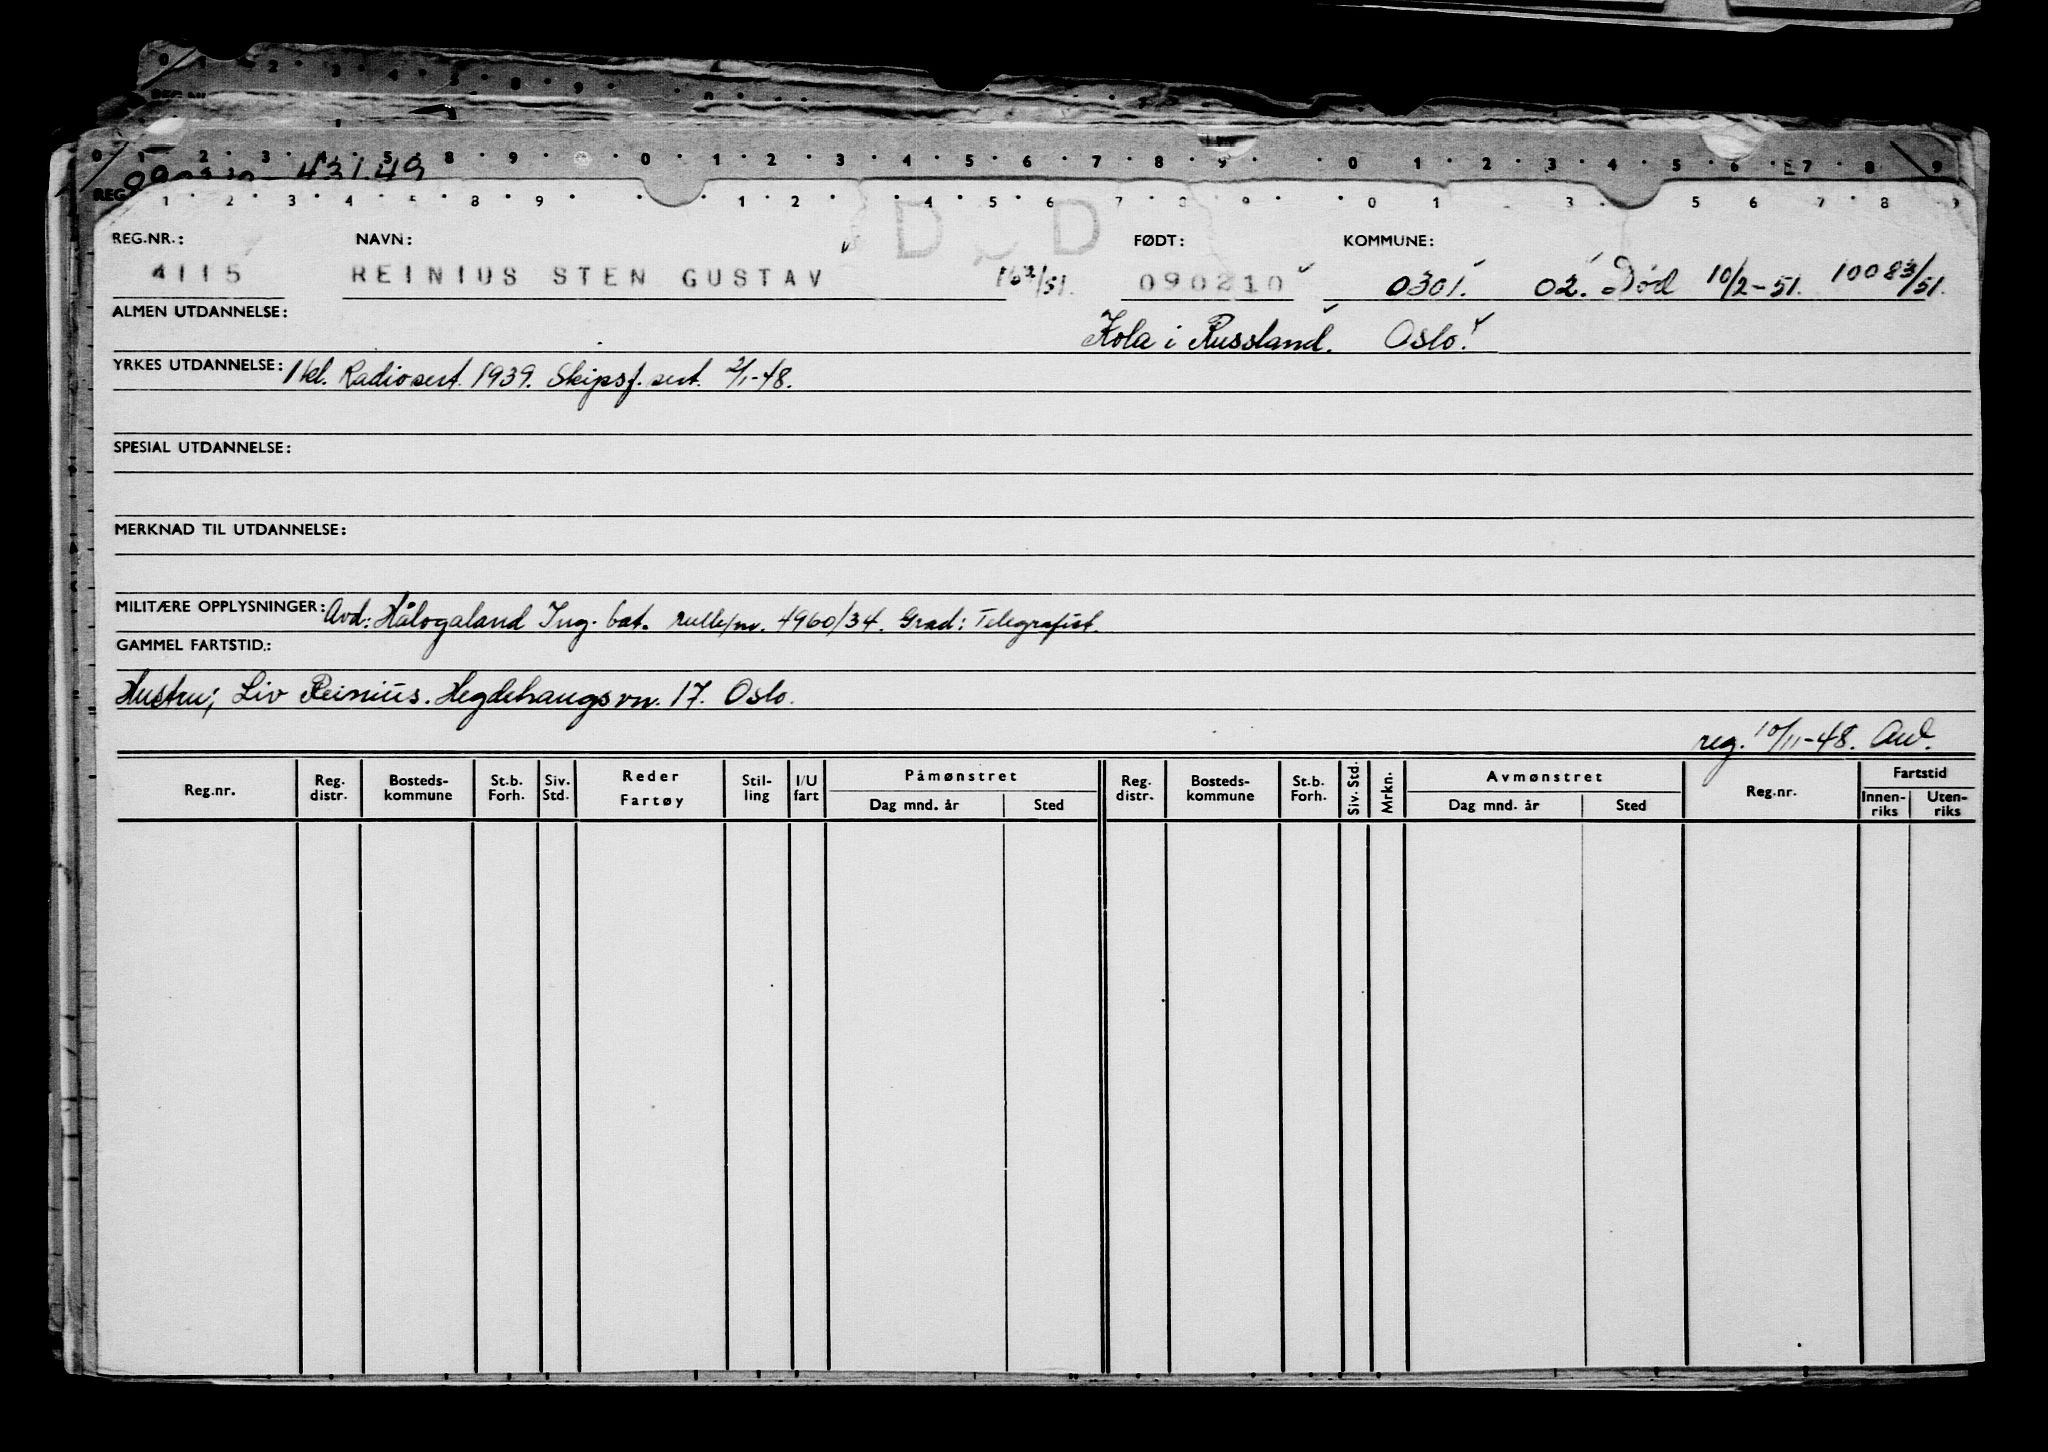 0 1 2 3 4 5 8 9
REG.NR
431.49
0 1 · 2 · 3 · 4 · 5 · 8 · 9 · 0 · 1 · 2 · 3 · 4 · 5 · 6 · 7 · 8 · 9 · · 0 · 1 · 2 · 3 · 4 · 5 · 6 · E7 · 8 · 9
REG
1 · 2 · 3 · 4 · 5 · 8 · 9 · 1 · 2 · 4 · 5 · 6 · 7 · 8 · 9 · · 0 · 1 · 3 · 5 6 · 7 · 8 · 9
DØD
REG.NR.: NAVN: FØDT: KOMMUNE:
4115 REINIUS STEN GUSTAV 16 2/51. 090210 0301. 02. Død 10/2-51. 10083/51.
ALMEN UTDANNELSE: Kola i Russland. Oslo.
YRKES UTDANNELSE: 1 kl. Radiosert. 1939. Skipsf. sert. 2/1-48.
SPESIAL UTDANNELSE:
MERKNAD TIL UTDANNELSE:
MILITÆRE OPPLYSNINGER: Avd: Hålogaland Ing. bat. rulle/nr. 4960/34. Grad: Telegrafist.
GAMMEL FARTSTID.:
Hustru; Liv Reinius. Hegdehaugsvn. 17. Oslo.
reg. 10/11-48. AW.
Reg.nr. Reg. distr. Bosteds-kommune St.b. Forh. Siv. Std. Reder Fartøy Stil-ling I/U fart Påmønstret Dag mnd. år Sted Reg. distr. Bosteds-kommune St.b. Forh. Siv. Std. Mrkn. Avmønstret Dag mnd. år Sted Reg.nr. Fartstid Innen-riks Uten-riks